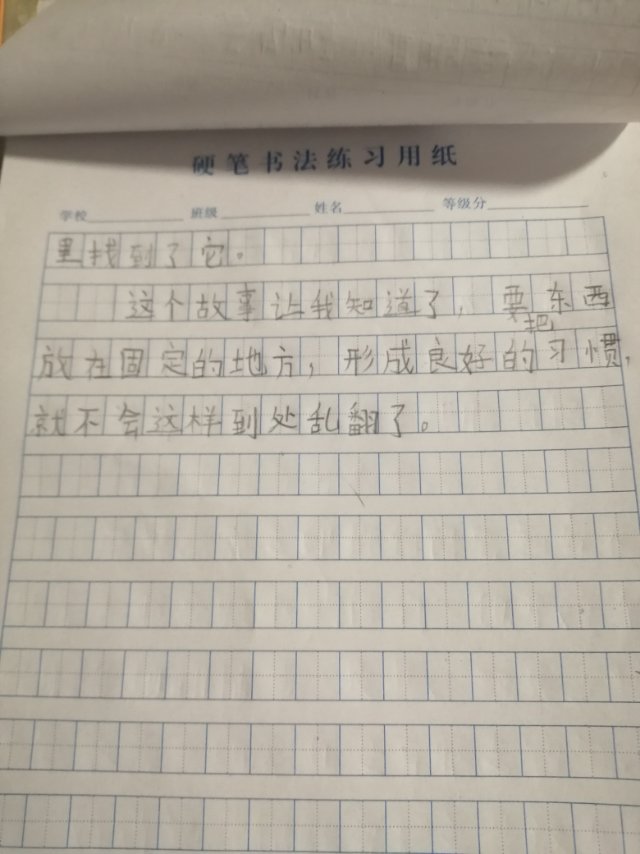 硬笔书法练习用纸
学校 班级 姓名 等级分
里找到了它。
这个故事让我知道了，要把东西
放在固定的地方，形成良好的习惯，
就不会这样到处乱翻了。